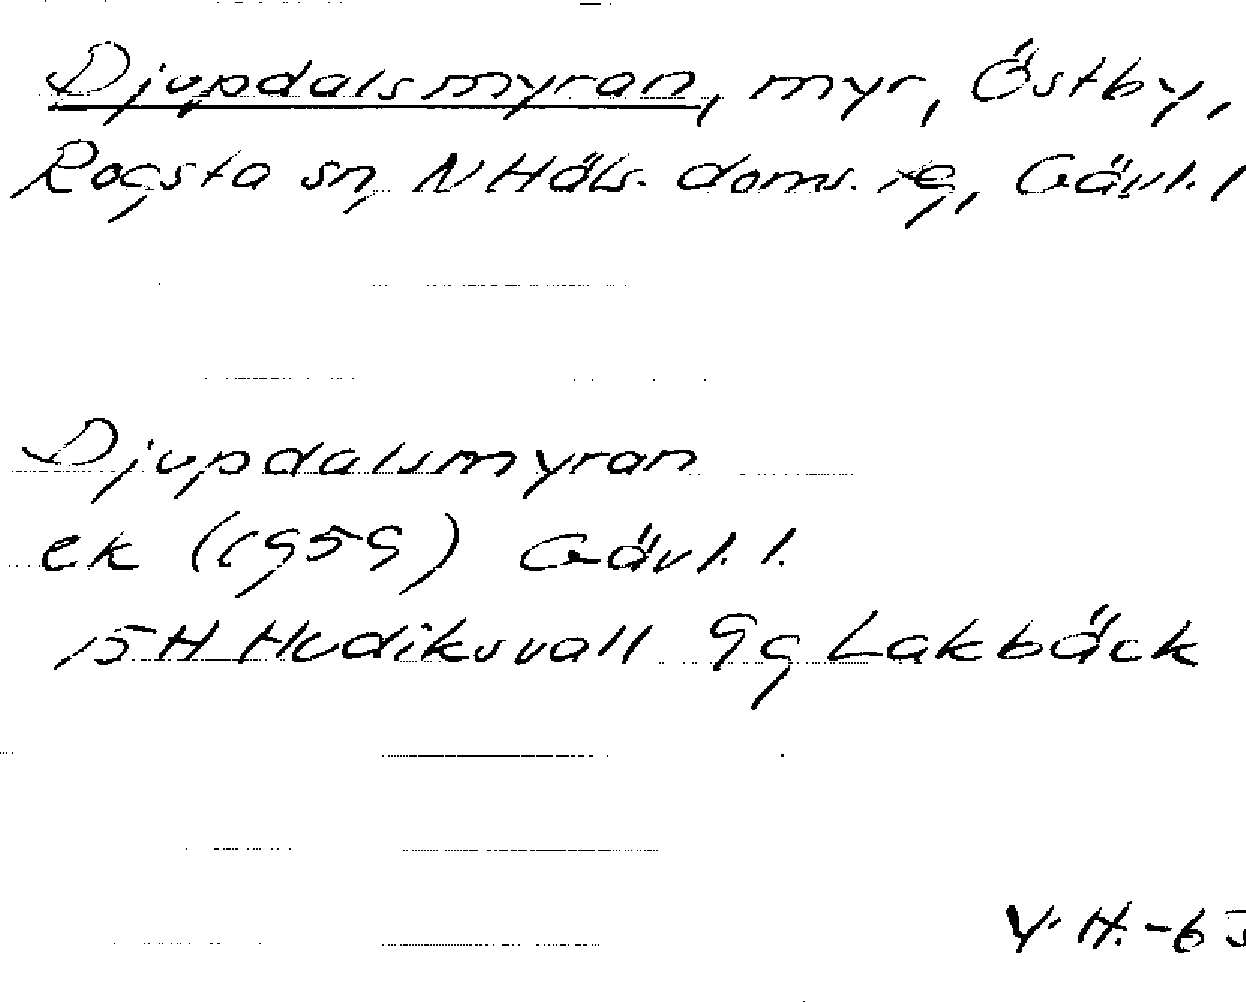 Djupdalsmyran, myr, Östby,
Rogsta sn, N Häls. doms. sg, Gävl. l
Djupdalsmyran
ek (1959) Gävl. l.
15H Hudiksvall 9g Lakbäck
V. H. -65